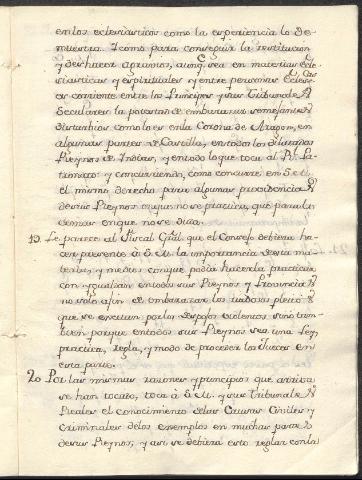 en los eclesiasticos como la experiencia lo de-
muestra. Y como para conseguir la restitucion
y deshacer agravios, aunq.e sea en materias Ecle-
siasticas y espirituales y entre personas Eclesi.cas
es corriente entre los Principes y sus Tribunales R.s
Seculares la potestad de embarazar semejantes
disturbios como lo es en la Corona de Aragon, en
algunas partes de Castilla, en todos los dilatados
Reynos de Indias, y en todo lo que toca al R.l Pa-
tronato y concurriendo, como concurre en S. M.
el mismo derecho para algunas providencias
de sus Reynos en que no se practica, que para los
demas en que se usa.
19. Le parece al Fiscal Gral. que el Consejo debiera ha-
cer presente à S. M. la importancia de esta ma-
teria, y medios con que podia hacerla practicar
con igualdad en todos sus Reynos y Provincias
no solo afin de embarazar los ruidosos pleitos
que se excitan por los despojos violentos, sino tam-
bien porque en todos sus Reynos sea una Ley,
practica, regla, y modo de proceder los Jueces en
esta parte.
20 Por las mismas razones y principios que arriba
se han tocado, toca à S. M. y sus Tribunales R.s
el conocimiento de las Causas Civiles y
Criminales de los exemptos en muchas partes
de sus Reynos, y asi se debiera esto reglar con la